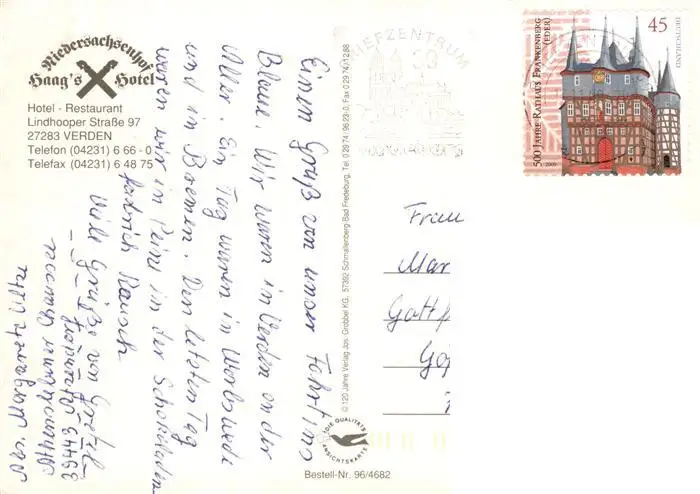 Niedersachsenhof
Haag's Hotel
Hotel - Restaurant
Lindhooper Straße 97
27283 VERDEN
Telefon (04231) 6 66 - 0
Telefax (04231) 6 48 75
Einen Gruß von unser Fahrt ins
Blaue. Wir waren in Verden an der
Aller. Ein Tag waren in Worbswede
und in Bremen. Den letzten Tag
waren wir in Peine in der Schokoladen
fabrick Rausch
Viele Grüße von
Abs. Margarete
39443
© 120 Jahre Verlag Jos. Grobbel KG, 57392 Schmallenberg Bad Fredeburg, Tel. 0 29 74 / 96 23-0, Fax 0 29 74 / 12 88
DIE QUALITÄTS
ANSICHTSKARTE
Bestell-Nr. 96/4682
BRIEFZENTRUM
500 JAHRE RATHAUS FRANKENBERG
(EDER)
45
DEUTSCHLAND
2009
Frau
Mar